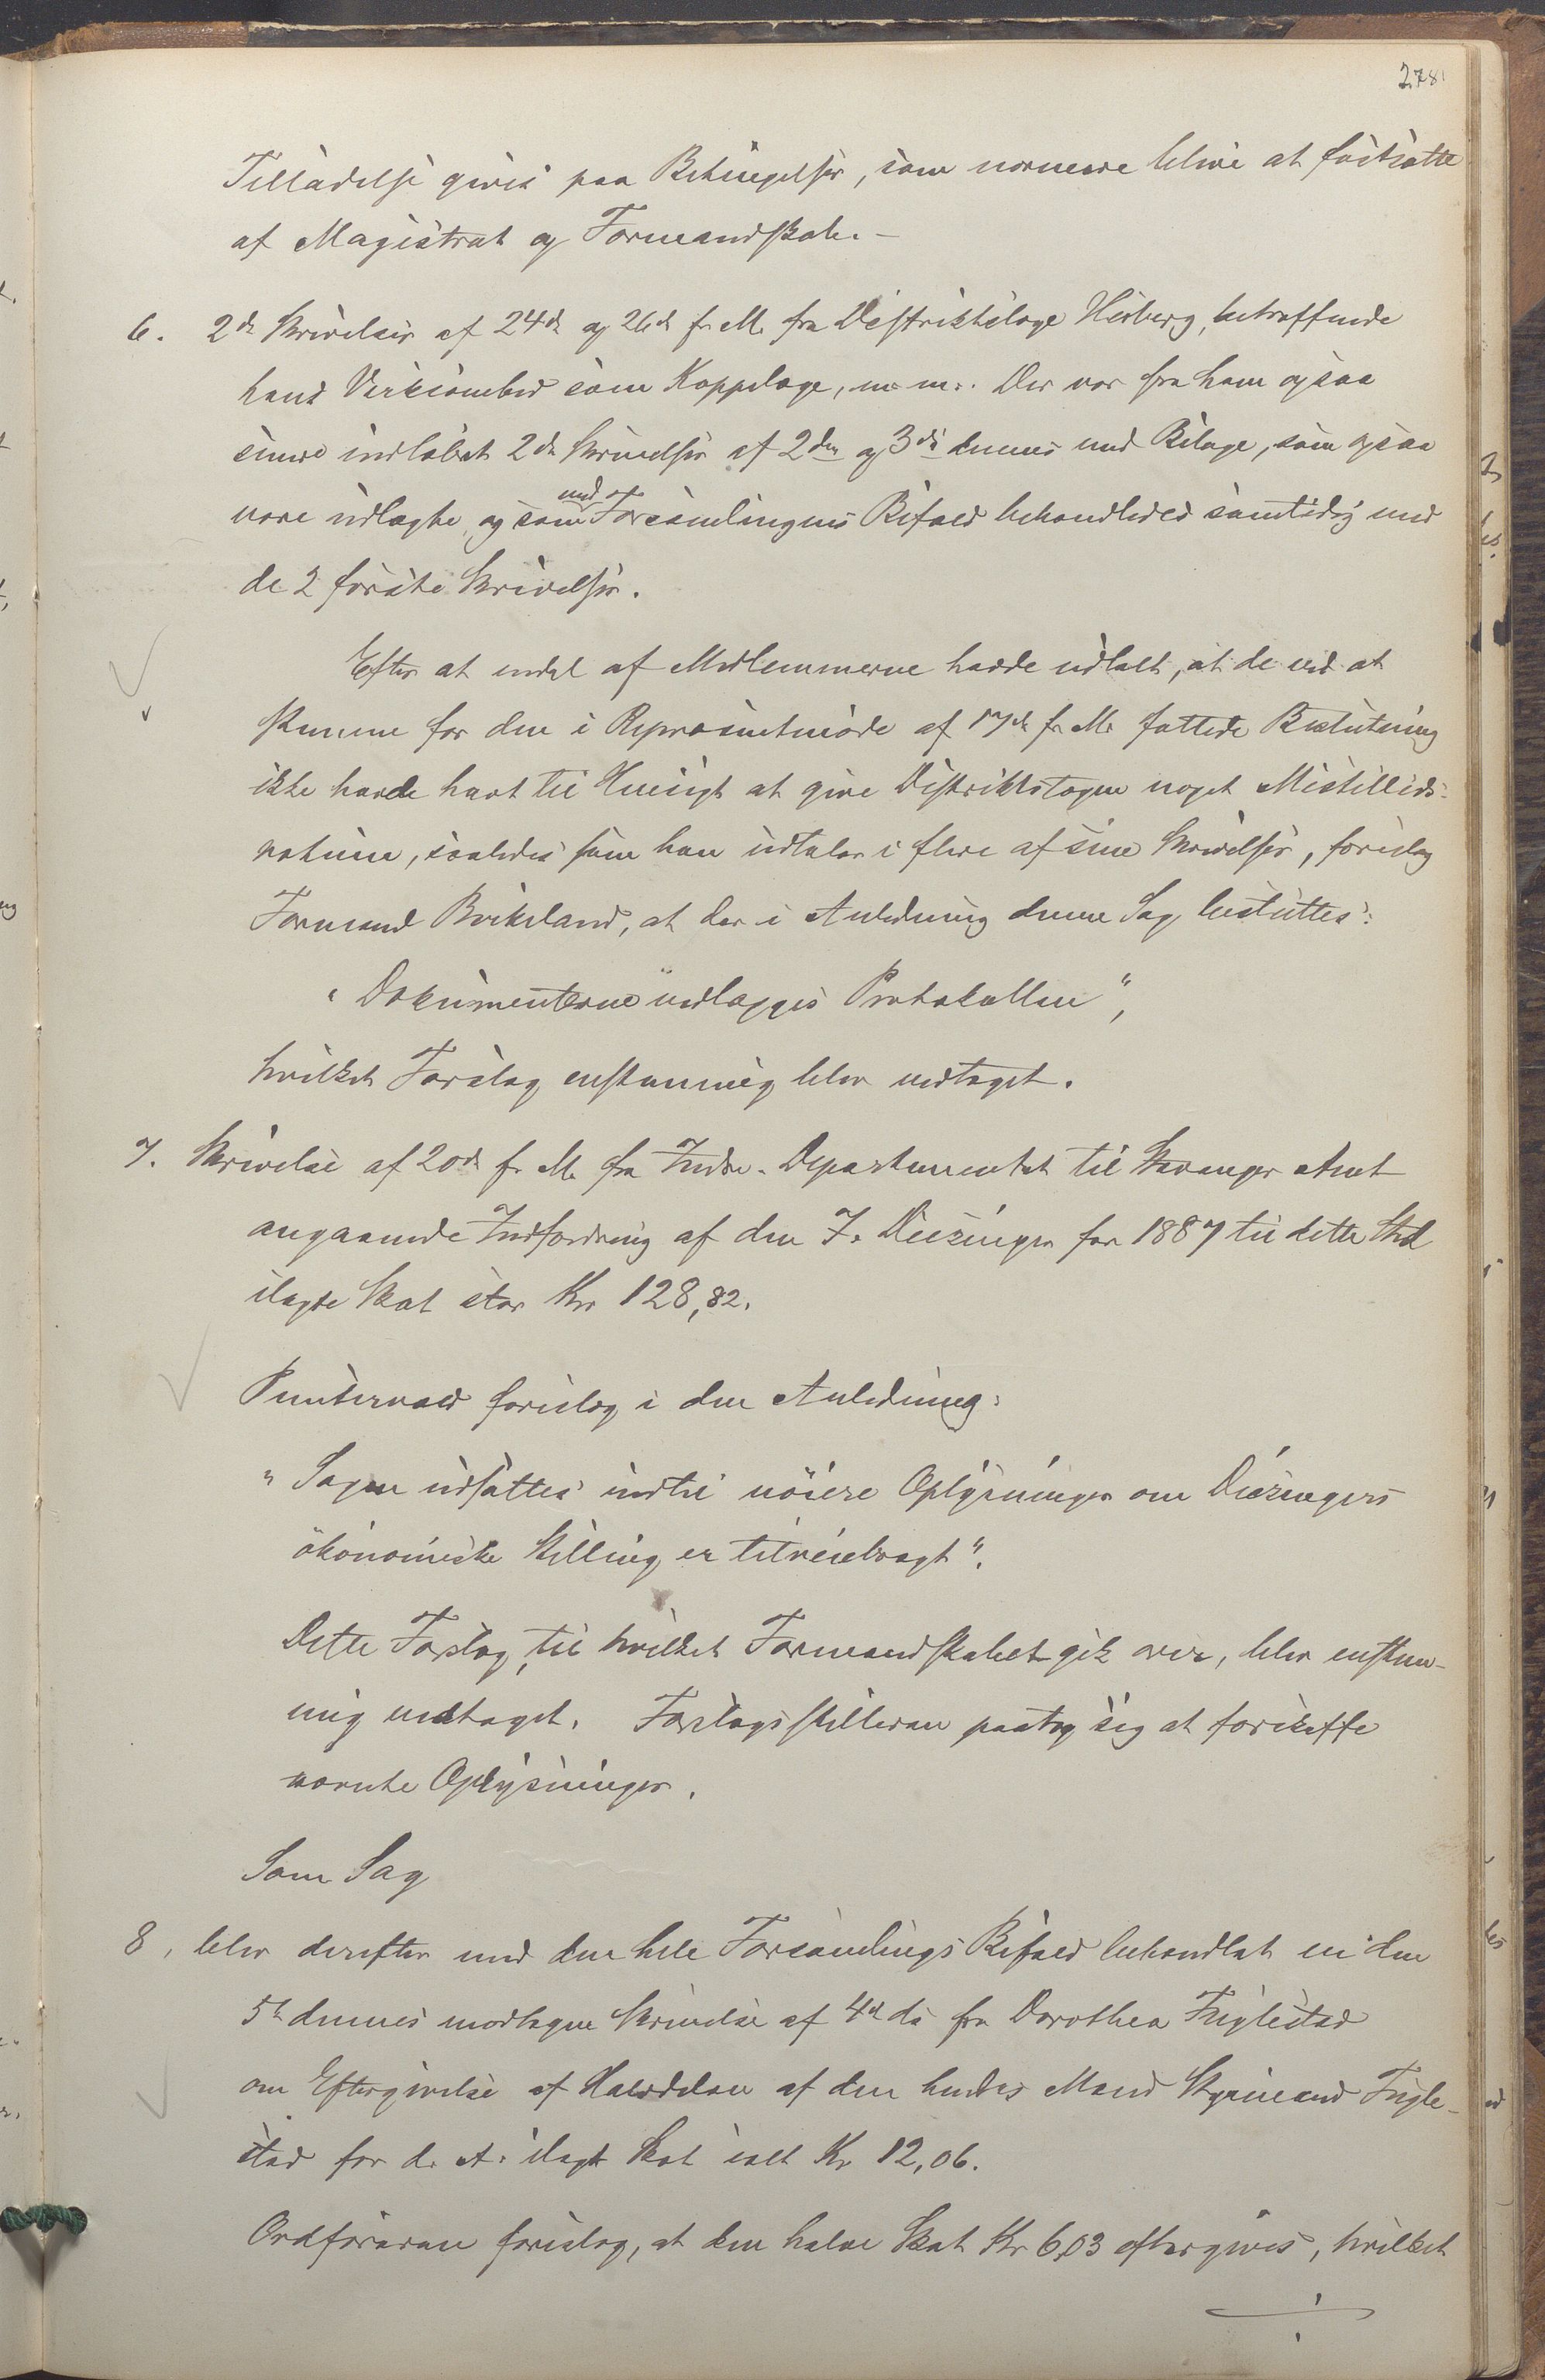 278
Tilladelse gives paa Betingelser, som nærmere blive at fastsætte
af Magistrat og Formandskab. –
6. 2de Skrivelser af 24de og 26de f. M. fra Distriktslæge Hiorberg, betræffende
hans Virksomhed som Koppelæge, m. m. Der var fra ham ogsaa
senere indløbet 2de Skrivelser af 2den og 3die dennes med Bilage, som ogsaa
vare udlagte, og som med Forsamlingens Bifald behandledes samtidig med
de 2 første Skrivelser.
Efter at endel af Medlemmerne havde udtalt, at de ved at
stemme for den i Repræsentmøde af 17de f. M. fattede Beslutning
ikke havde havt til Hensigt at give Distriktslægen noget Mistillids-
votum, saaledes som han udtaler i flere af sine Skrivelser, foreslog
Formand Birkeland, at der i Anledning denne Sag besluttes:
"Dokumenterne vedlægges Protokollen",
hvilket Forslag enstemmig blev vedtaget.
7. Skrivelse af 20de f. M. fra Indre-Departementet til Stavanger Amt
angaaende Indfordring af den F. Diesinger for 1887 til dette Sted
ilagte Skat stor Kr 128,82.
Puntervold foreslog i den Anledning:
"Sagen udsættes indtil nöiere Oplysninger om Diesingers
ökonomiske Stilling er tilveiebragt".
Dette Forslag, til hvilket Formandskabet gik over, blev enstem-
mig vedtaget. Forslagsstilleren paatog sig at forskaffe
nævnte Oplysninger.
Som Sag
8, blev derefter med den hele Forsamlings Bifald behandlet en den
5te dennes modtagen Skrivelse af 4de ds fra Dorothea Fuglestad
om Eftergivelse af Halvdelen af den hendes Mand Styrmand Fugle-
stad for d. A. ilagte Skat ialt Kr. 12,06.
Ordføreren foreslog, at den halve Skat Kr 6,03 eftergives, hvilket